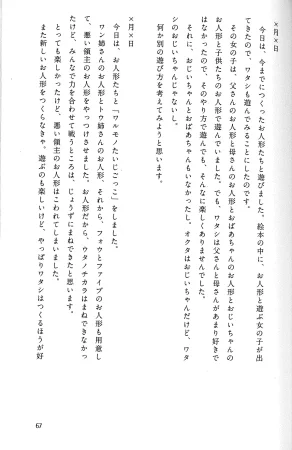 ×月×日
　今日は、今までにつくったお人形たちと遊びました。絵本の中に、お人形と遊ぶ女の子が出
てきたので、ワタシも遊んでみることにしたのです。
　その女の子は、父さんのお人形と母さんのお人形とおばあちゃんのお人形とおじいちゃんの
お人形と子供たちのお人形で遊んでいました。でも、ワタシは父さんと母さんがあまり好きで
はなかったので、そのやり方で遊んでも、そんなに楽しくありませんでした。
　それに、おじいちゃんとおばあちゃんもいなかったし。オクタはおじいちゃんだけど、ワタ
シのおじいちゃんじゃないし。
　何か別の遊び方を考えてみようと思います。
×月×日
　今日は、お人形たちと「ワルモノたいじごっこ」をしました。
　ワン姉さんのお人形とトウ姉さんのお人形、それから、フォウとファイブのお人形も用意し
て、悪い領主のお人形をやっつけさせました。お人形だから、ウタノチカラはまねできなかっ
たけど、みんなで力を合わせて戦うところは、じょうずにまねできたと思います。
　とっても楽しかったけど、悪い領主のお人形はこわれてしまいました。
　また新しいお人形をつくらなきゃ。遊ぶのも楽しいけど、やっぱりワタシはつくるほうが好
67